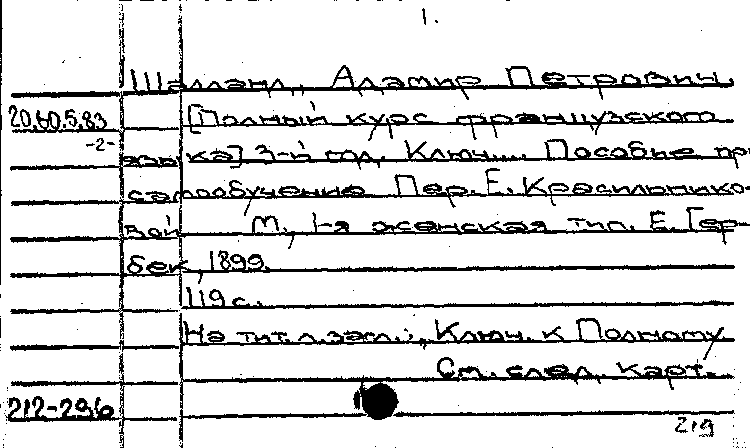 1.
Шалланд, Адамир Петрович.
20.60.5.83 [Полный курс французского
-2- языка] 3-й год. Ключ.... Пособие при
самообучении Пер. Е. Красильнико-
вой М., 1-я женская тип. Е. Гер-
бек, 1899.
119 с.
На тит. л. загл.: Ключ. к Полному
См. след. карт.
212-296
219